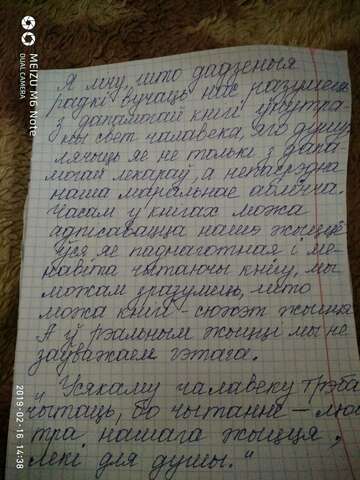 Я лічу, што дадзеныя
радкі вучаць нас разумець
з дапамогай кнігі унутра-
ны свет чалавека, яго душу,
лячыць яе не толькі з дапа-
могай лекараў, а непасрэдна
наша маральнае аблічча.
Часам у кнігах можа
адписавацца наша жыццё
ўся яе паднаготная і ме-
навіта чытаючы кнігу, мы
можам зразумець, што
можа кніга - сюжэт жыцця
А ў рэальным жыцці мы не
заўважаем гэтага.
„Усякаму чалавеку трэба
чытаць, бо чытанне - люс
тра нашага жыцця,
лекі для душы."
MEIZU M6 Note
DUAL CAMERA
2019-02-16 14:38